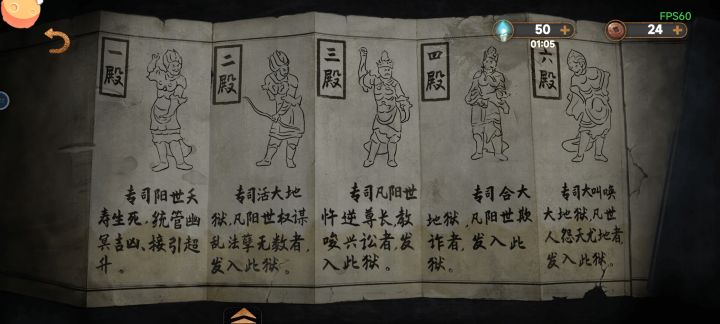 FPS60
50
01:05
24
一殿
专司阳世夭
寿生死、统管幽
冥吉凶、接引超
升。
二殿
专司活大地
狱,凡阳世权谋
乱法孽无数者,
发入此狱。
三殿
专司凡阳世
忤逆尊长,教
唆兴讼者,发
入此狱。
四殿
专司合大
地狱,凡阳世欺
诈者,发入此
狱。
六殿
专司大叫唤
大地狱,凡世
人怨天尤地者,
发入此狱。